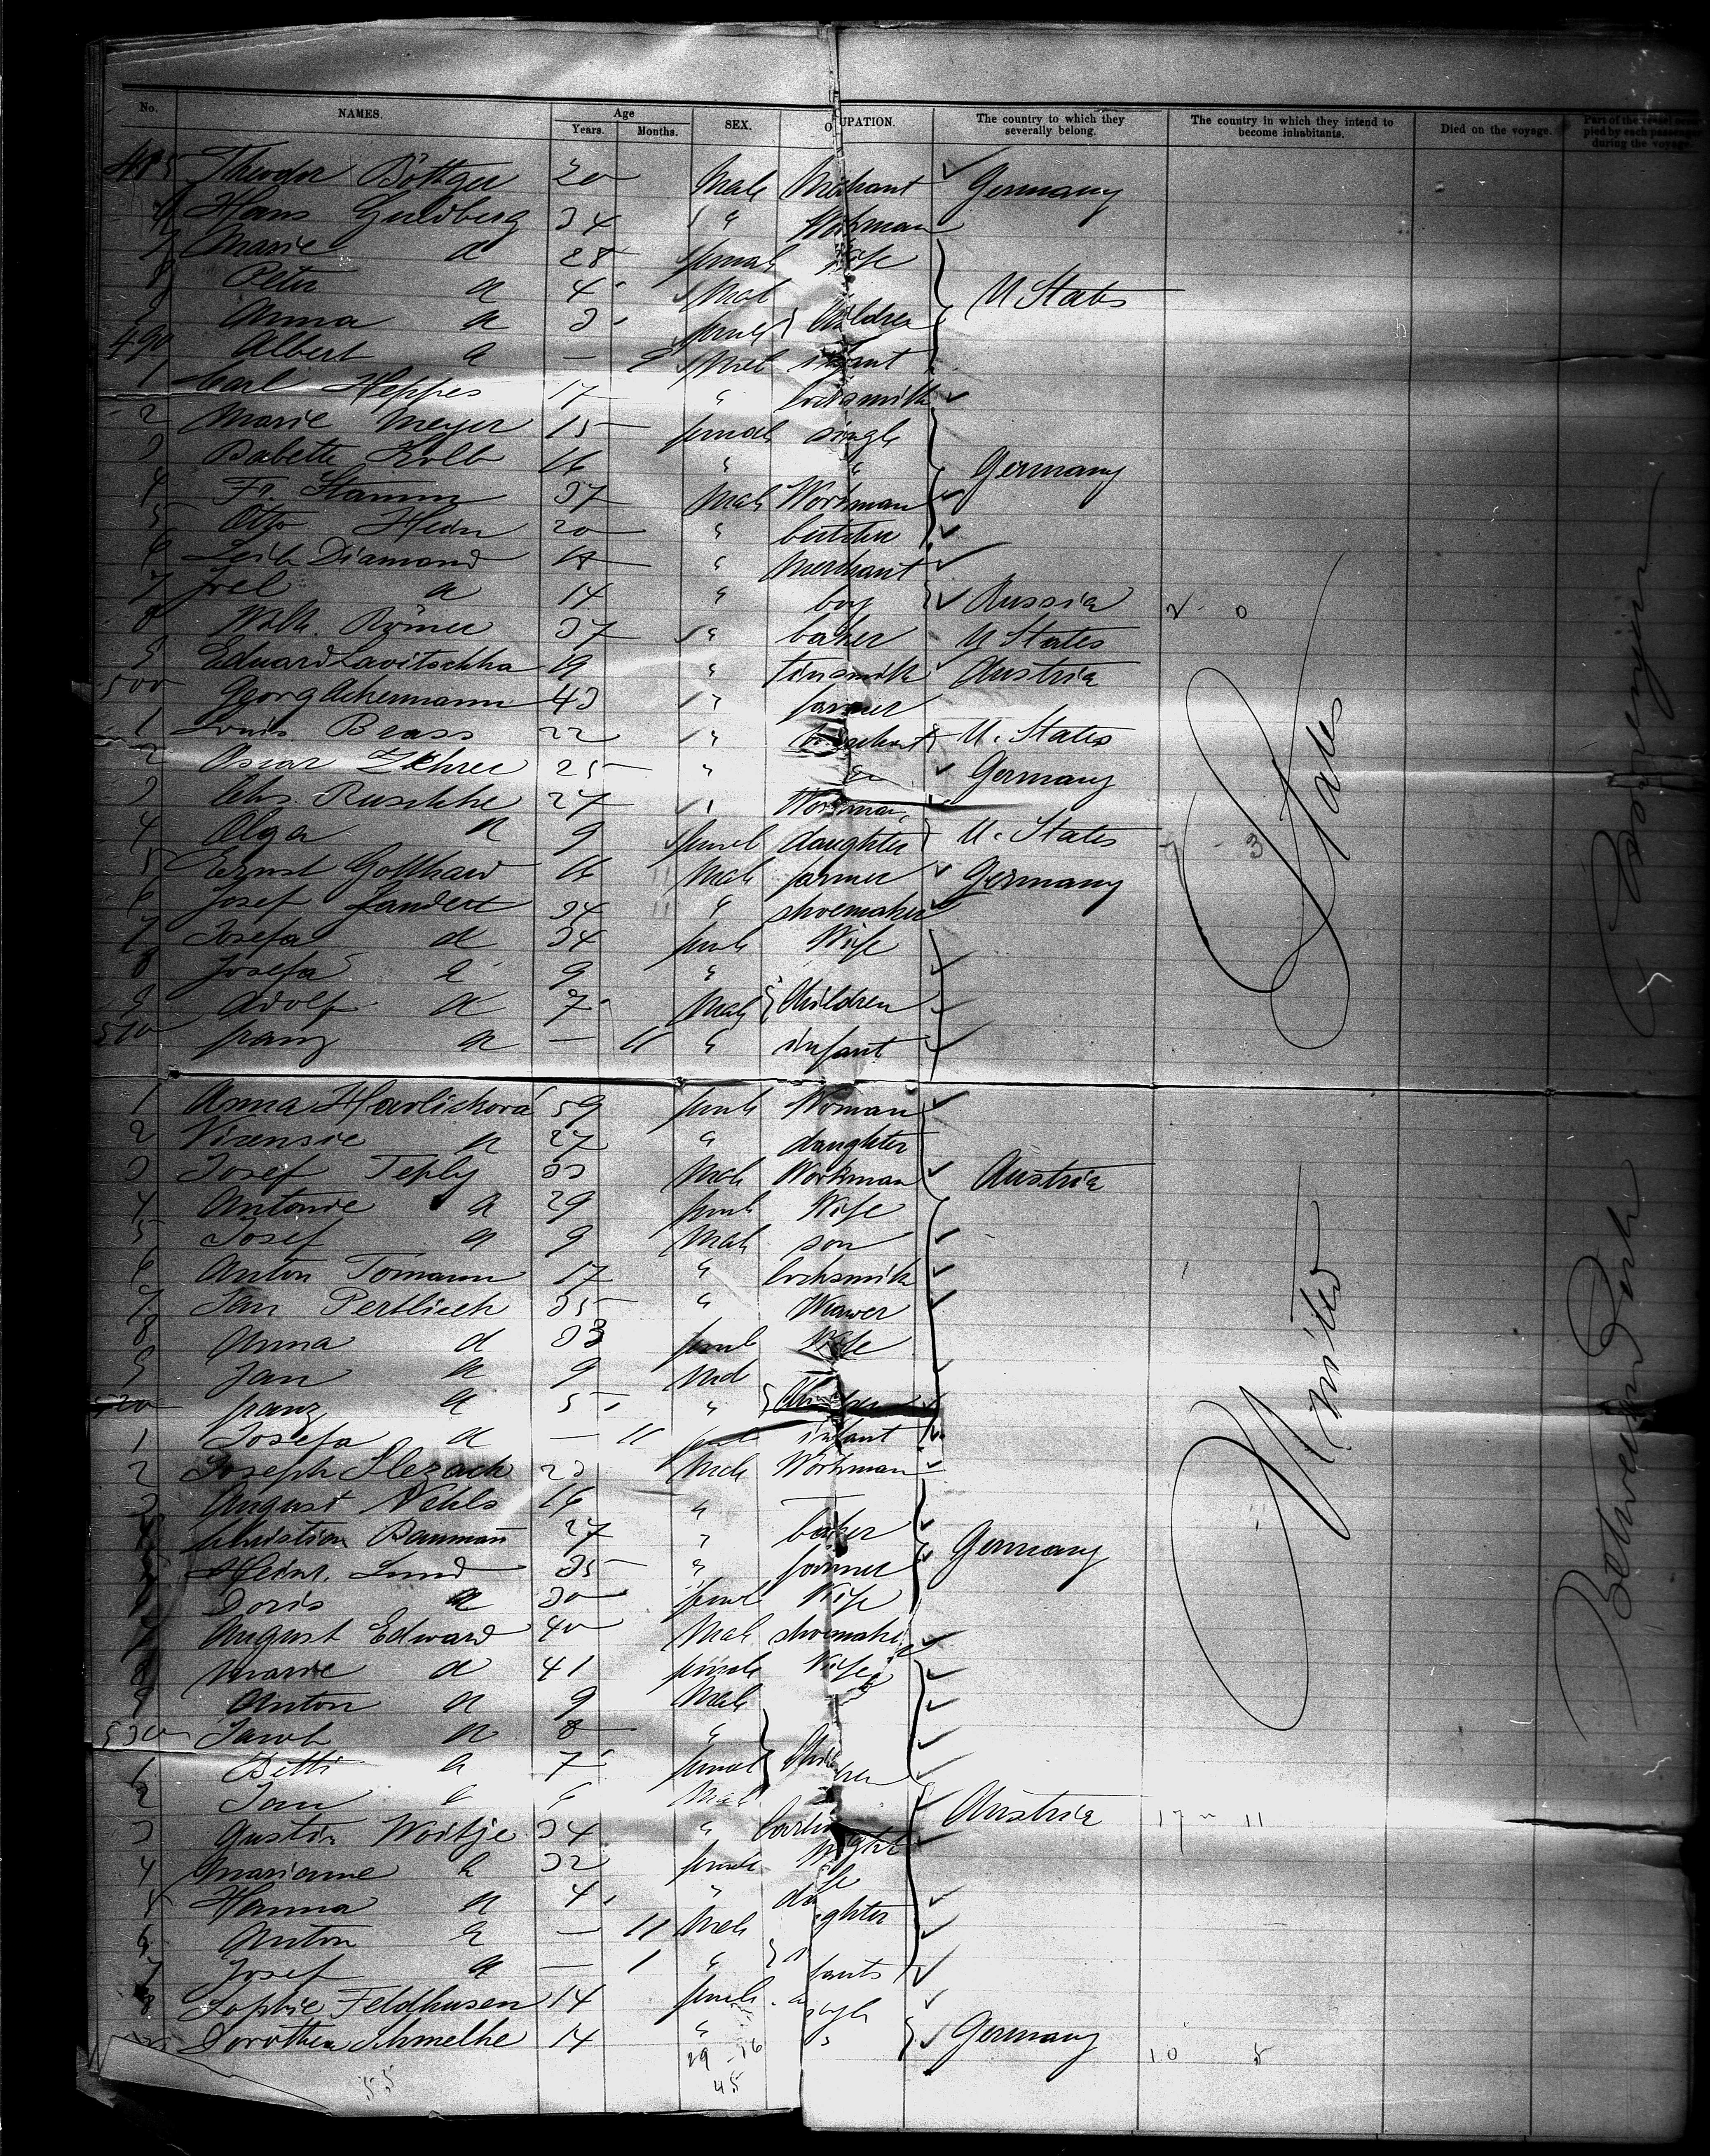 No. NAMES. Age Years. Months. SEX. OCUPATION. The country to which they severally belong. The country in which they intend to become inhabitants. Died on the voyage. Part of the vessel occupied by each passenger during the voyage.
485 Theodor Böttger 20 Male Merchant Germany
6 Hans Guldberg 34 " Workman
7 Marie d 28 female Wife
8 Peter d 4 Male U States
9 Anna d 3 female Children
490 Albert d — 9 Male infant
1 Carl Heppes 17 " locksmith
2 Marie Meyer 15 female single
3 Babette Kolb 16 " " Germany
4 Fr. Stamm 37 Male Workman
5 Otto Hein 20 " butcher
6 Leib Diamand 18 " Merchant
7 Joel d 14 " boy Russia 2 - 0
8 Wilh. Römer 37 " baker U States
9 Eduard Lavitschka 19 " tinsmith Austria
500 Georg Ackermann 43 " farmer
1 Louis Brass 22 " U. States
2 Oscar Zehrer 25 " Germany
3 Chs. Ruschke 27 " Workman
4 Olga d 9 female daughter U. States 7 - 3
5 Ernst Gotthard 16 Male farmer Germany
6 Josef Landert 34 " shoemaker
7 Josefa d 34 female Wife
8 Josefa d 9 "
9 Adolf d 7 Male Children
510 franz d — 11 " infant
States
1 Anna Havlickova 59 female Woman
2 d 27 " daughter
3 Josef Teply 33 Male Workman Austria
4 Antonie d 29 female Wife
5 Josef d 9 Male son
6 Anton Tomann 17 " locksmith
7 Jan Pertlicek 35 " Weawer
8 Anna d 33 female Wife
9 Jan d 9 Male
520 franz d 5 " Children
1 Josefa d — 11 female infant
2 Joseph Slezack 23 Male Workman
3 August Nehls 16 "
4 Christian Baumann 27 " baker
5 Heinr. Lund 35 " farmer Germany
6 Doris d 30 female Wife
United
7 August Edward 40 Male shoemaker
8 Marie d 41 female Wife
9 Anton d 9 Male
530 Jacob d 8 "
1 Betti d 7 female Children
2 Jan d 6 Male Austria 17 - 11
3 Gustin Woitje 34 "
4 Marianne d 32 female Wife
5 Hanna d 4 " daughter
6 Anton d — 11 Male
7 Josef d — 1 " infants
8 Sophie Feldhusen 14 female single
Dorothea Schmelke 14 " " Germany 10 5
29 - 16
45
55
Between Deck